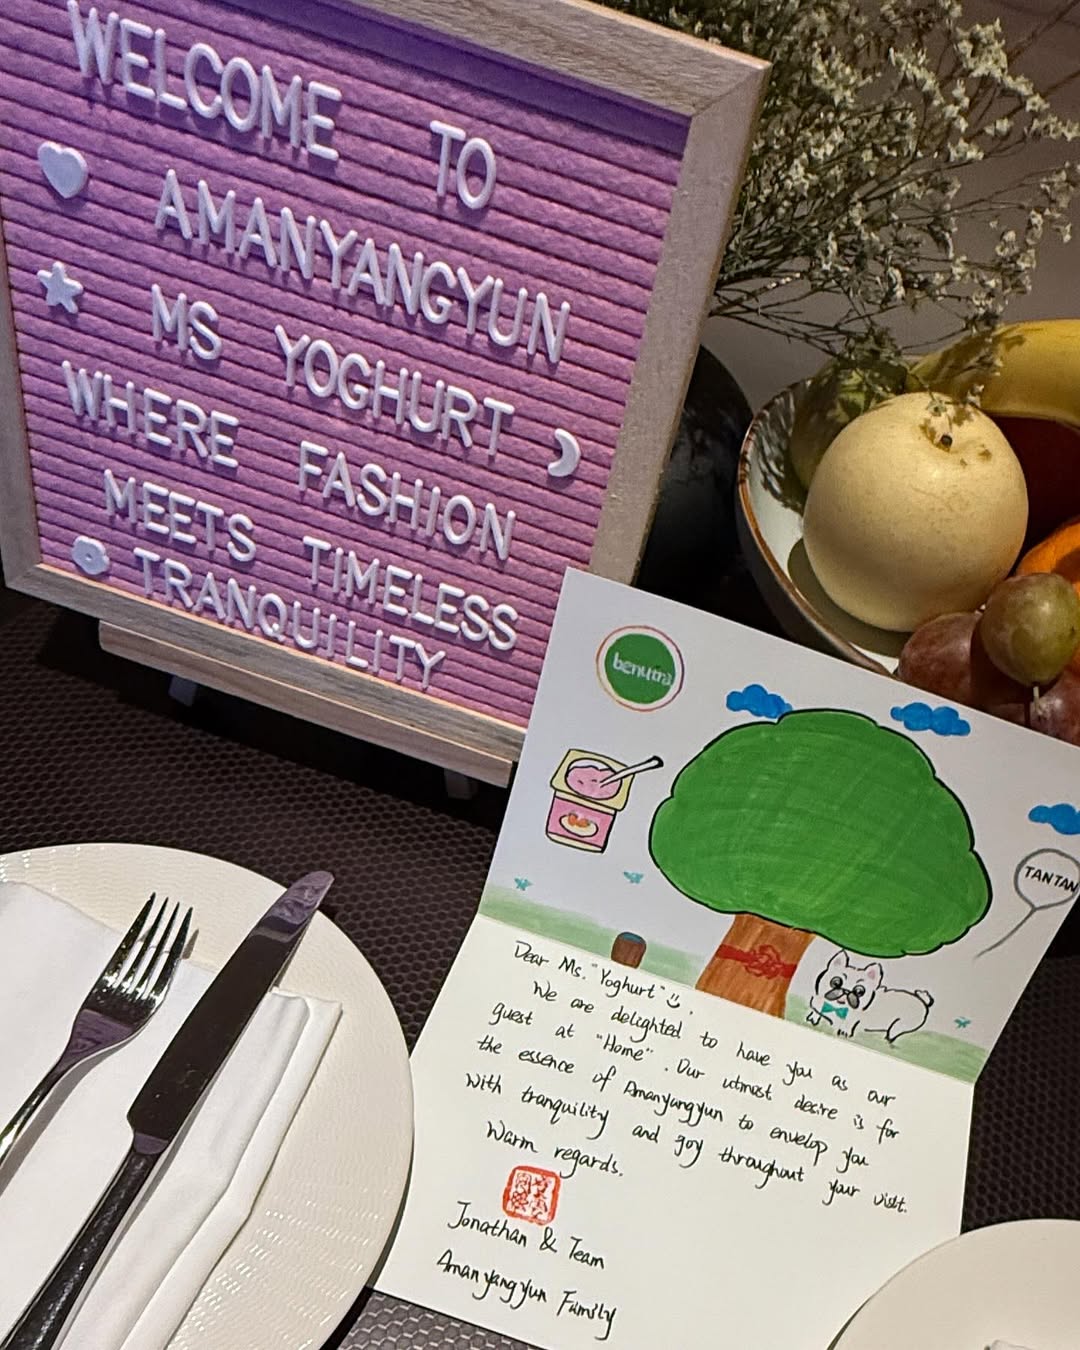 WELCOME TO
AMANYANGYUN
MS YOGHURT
WHERE FASHION
MEETS TIMELESS
TRANQUILITY
benutra
TANTAN
Dear Ms. "Yoghurt" :),
We are delighted to have you as our
guest at "Home". Our utmost desire is for
the essence of Amanyangyun to envelop you
with tranquility and goy throughout your visit.
Warm regards.
Jonathan & Team
Amanyangyun Family